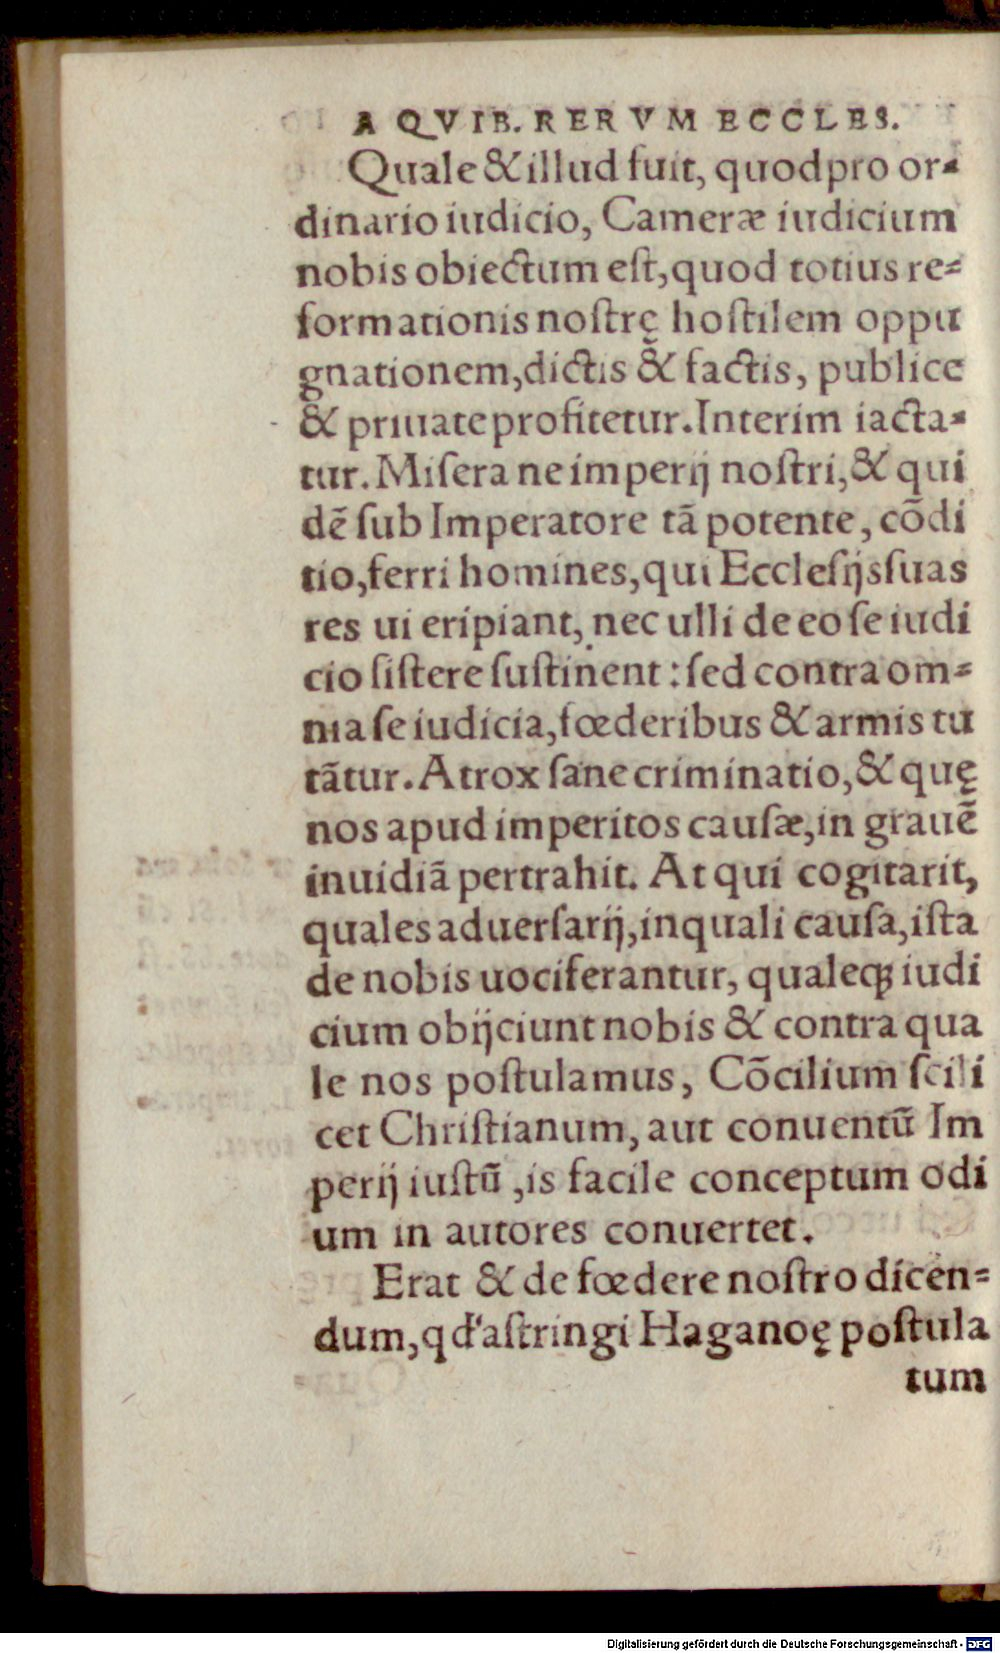 A QVIB. RERVM ECCLES.
Quale & illud fuit, quod pro or-
dinario iudicio, Cameræ iudicium
nobis obiectum est, quod totius re-
formationis nostrę hostilem oppu
gnationem, dictis & factis, publice
& priuate profitetur. Interim iacta-
tur. Misera ne imperij nostri, & qui
dē sub Imperatore tā potente, cōdi
tio, ferri homines, qui Ecclesijs suas
res ui eripiant, nec ulli de eo se iudi
cio sistere sustinent: sed contra om-
nia se iudicia, fœderibus & armis tu
tātur. Atrox sane criminatio, & quę
nos apud imperitos causæ, in grauē
inuidiā pertrahit. At qui cogitarit,
quales aduersarij, in quali causa, ista
de nobis uociferantur, qualeqꝫ iudi
cium obijciunt nobis & contra qua
le nos postulamus, Cōcilium scili
cet Christianum, aut conuentū Im
perij iustū, is facile conceptum odi
um in autores conuertet.
Erat & de fœdere nostro dicen-
dum, qd' astringi Haganoę postula
tum
Digitalisierung gefördert durch die Deutsche Forschungsgemeinschaft - DFG